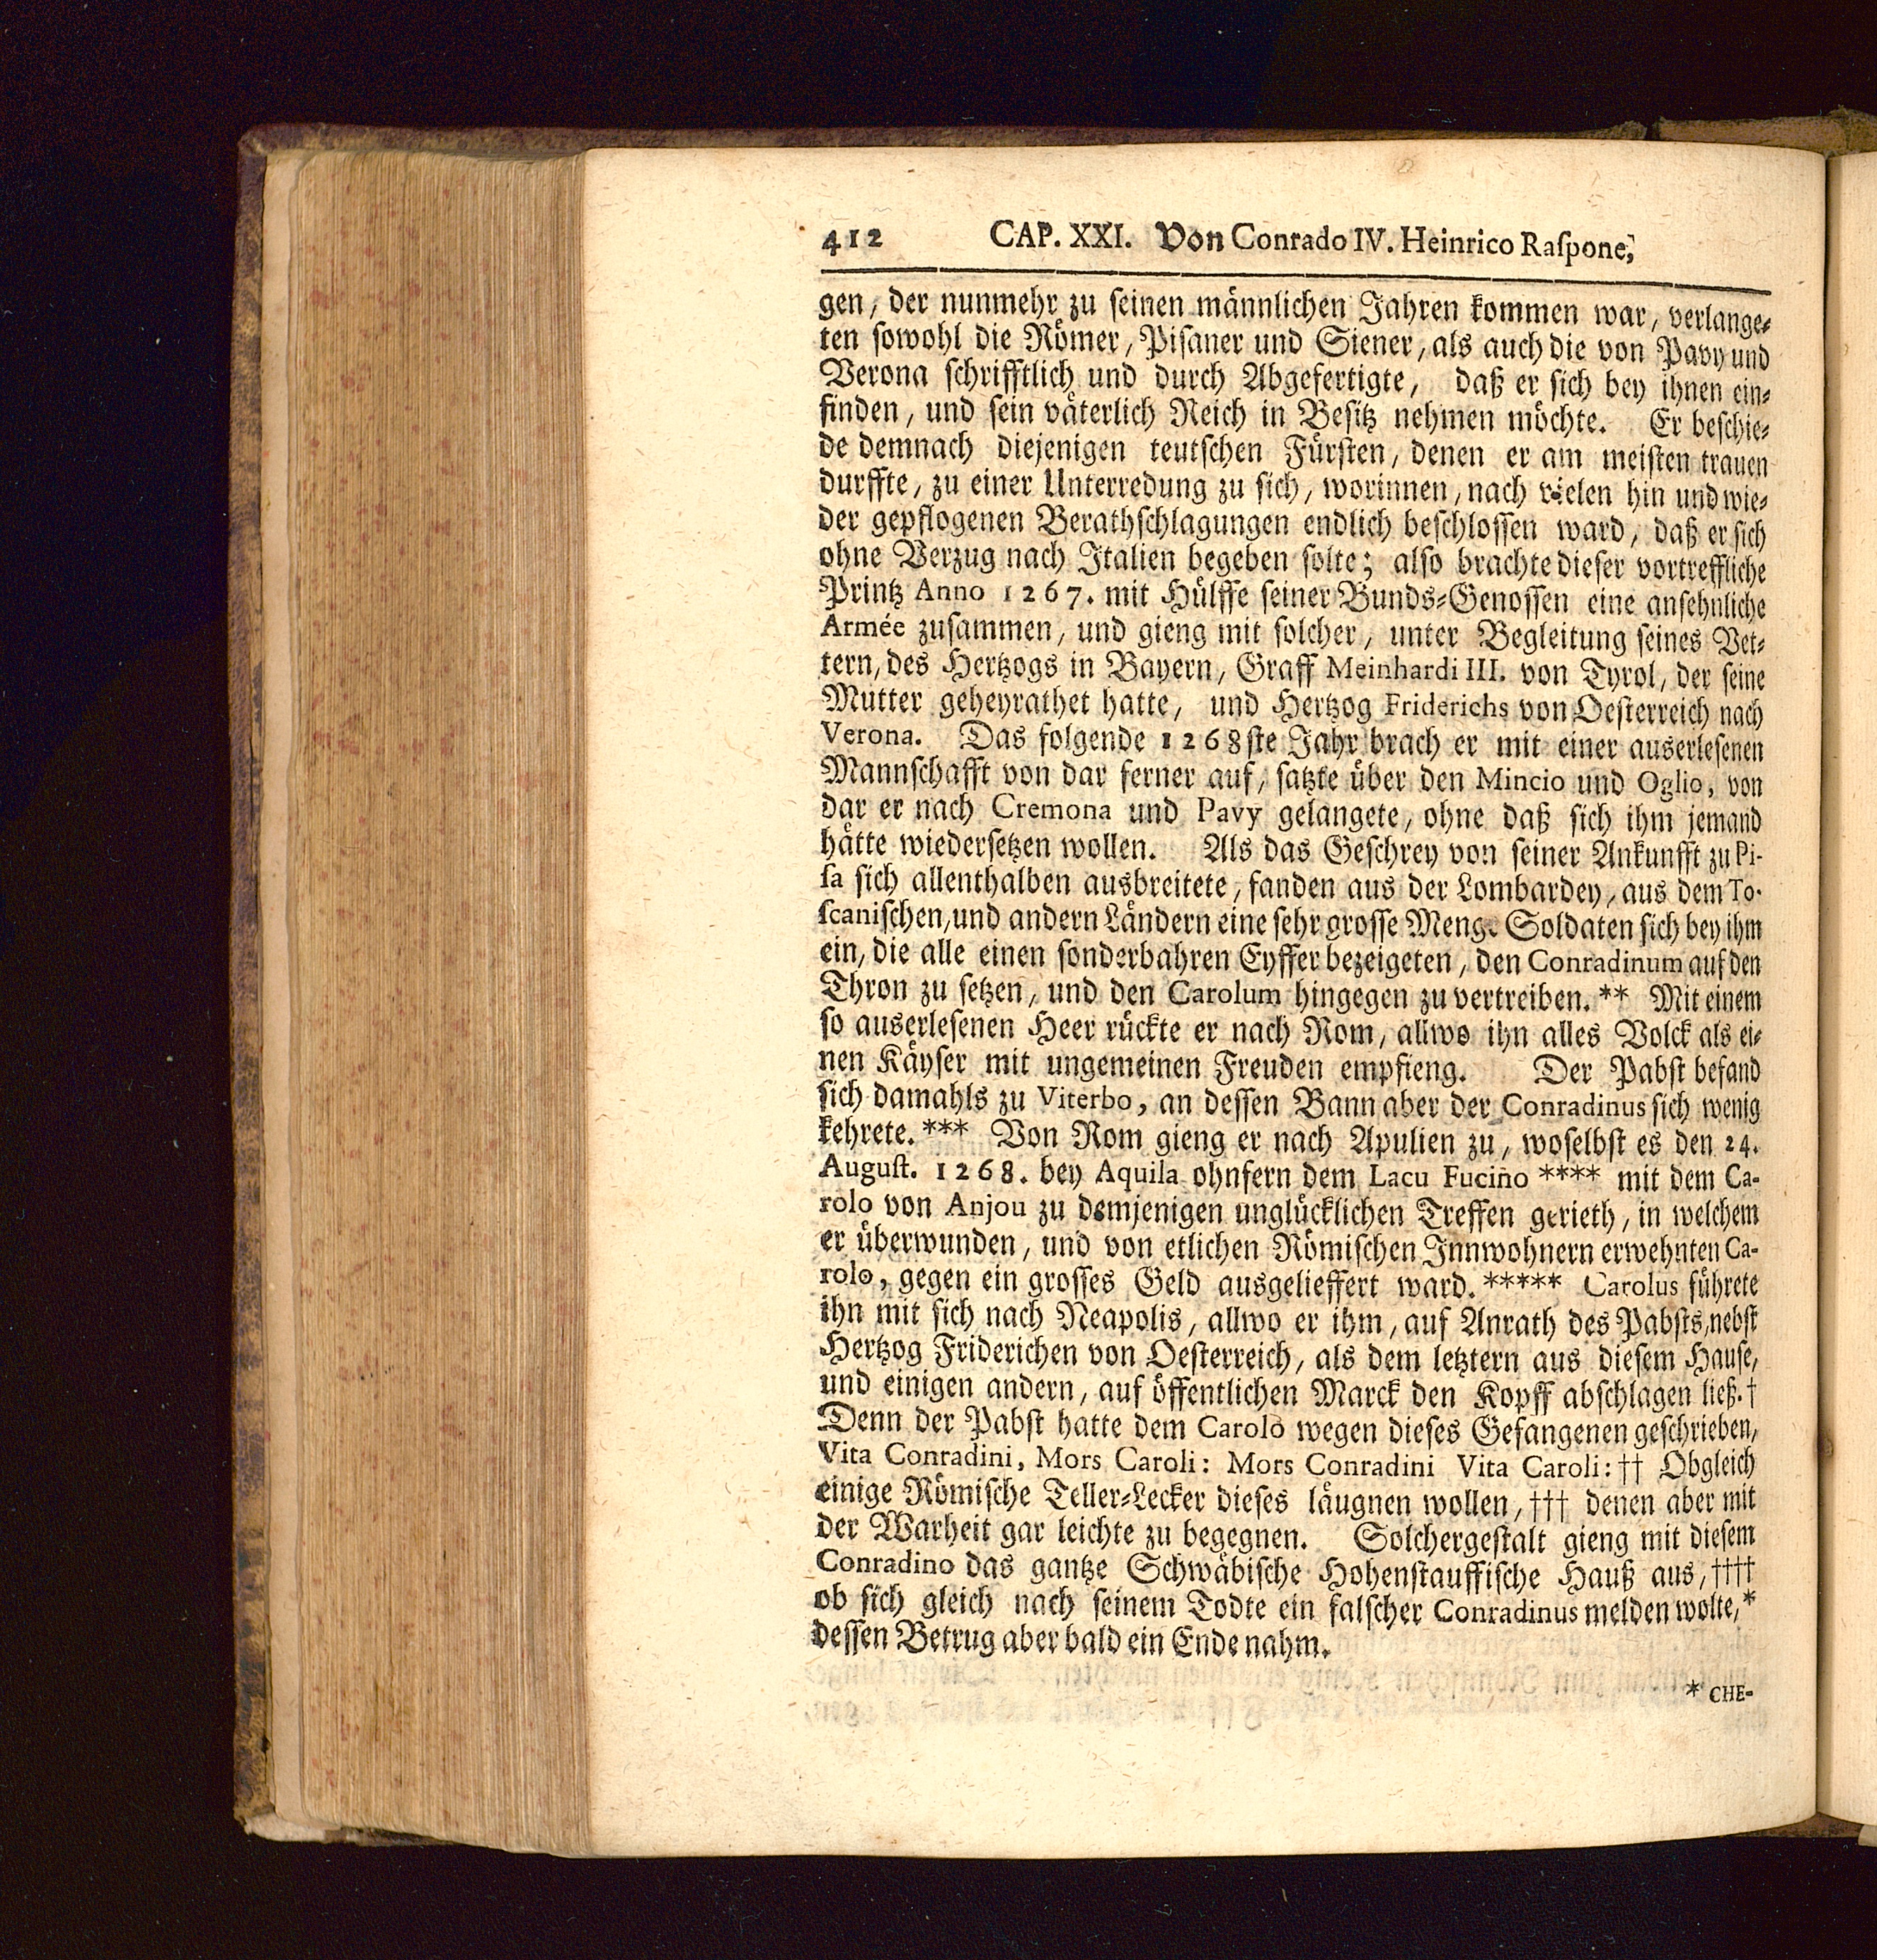 412 CAP. XXI. Von Conrado IV. Heinrico Raſpone,
gen, der nunmehr zu ſeinen männlichen Jahren kommen war, verlange-
ten ſowohl die Römer, Piſaner und Siener, als auch die von Pavy und
Verona ſchrifftlich und durch Abgefertigte, daß er ſich bey ihnen ein-
finden, und ſein väterlich Reich in Beſitz nehmen möchte. Er beſchie-
de demnach diejenigen teutſchen Fürſten, denen er am meiſten trauen
durffte, zu einer Unterredung zu ſich, worinnen, nach vielen hin und wie-
der gepflogenen Berathſchlagungen endlich beſchloſſen ward, daß er ſich
ohne Verzug nach Italien begeben ſolte; alſo brachte dieſer vortreffliche
Printz Anno 1267. mit Hülffe ſeiner Bunds-Genoſſen eine anſehnliche
Armée zuſammen, und gieng mit ſolcher, unter Begleitung ſeines Vet-
tern, des Hertzogs in Bayern, Graff Meinhardi III. von Tyrol, der ſeine
Mutter geheyrathet hatte, und Hertzog Friderichs von Oeſterreich nach
Verona. Das folgende 1268ſte Jahr brach er mit einer auserleſenen
Mannſchafft von dar ferner auf, ſatzte über den Mincio und Oglio, von
dar er nach Cremona und Pavy gelangete, ohne daß ſich ihm jemand
hätte wiederſetzen wollen. Als das Geſchrey von ſeiner Ankunfft zu Pi-
ſa ſich allenthalben ausbreitete, fanden aus der Lombardey, aus dem To-
ſcaniſchen, und andern Ländern eine ſehr groſſe Menge Soldaten ſich bey ihm
ein, die alle einen ſonderbahren Eyffer bezeigeten, den Conradinum auf den
Thron zu ſetzen, und den Carolum hingegen zu vertreiben. ** Mit einem
ſo auserleſenen Heer rückte er nach Rom, allwo ihn alles Volck als ei-
nen Käyſer mit ungemeinen Freuden empfieng. Der Pabſt befand
ſich damahls zu Viterbo, an deſſen Bann aber der Conradinus ſich wenig
kehrete. *** Von Rom gieng er nach Apulien zu, woſelbſt es den 24.
Auguſt. 1268. bey Aquila ohnfern dem Lacu Fucino **** mit dem Ca-
rolo von Anjou zu demjenigen unglücklichen Treffen gerieth, in welchem
er überwunden, und von etlichen Römiſchen Innwohnern erwehnten Ca-
rolo, gegen ein groſſes Geld ausgelieffert ward. ***** Carolus führete
ihn mit ſich nach Neapolis, allwo er ihm, auf Anrath des Pabſts, nebſt
Hertzog Friderichen von Oeſterreich, als dem letztern aus dieſem Hauſe,
und einigen andern, auf öffentlichen Marck den Kopff abſchlagen ließ. †
Denn der Pabſt hatte dem Carolo wegen dieſes Gefangenen geſchrieben,
Vita Conradini, Mors Caroli: Mors Conradini Vita Caroli: †† Obgleich
einige Römiſche Teller-Lecker dieſes läugnen wollen, ††† denen aber mit
der Warheit gar leichte zu begegnen. Solchergeſtalt gieng mit dieſem
Conradino das gantze Schwäbiſche Hohenſtauffiſche Hauß aus, ††††
ob ſich gleich nach ſeinem Todte ein falſcher Conradinus melden wolte, *
deſſen Betrug aber bald ein Ende nahm.
* CHE-